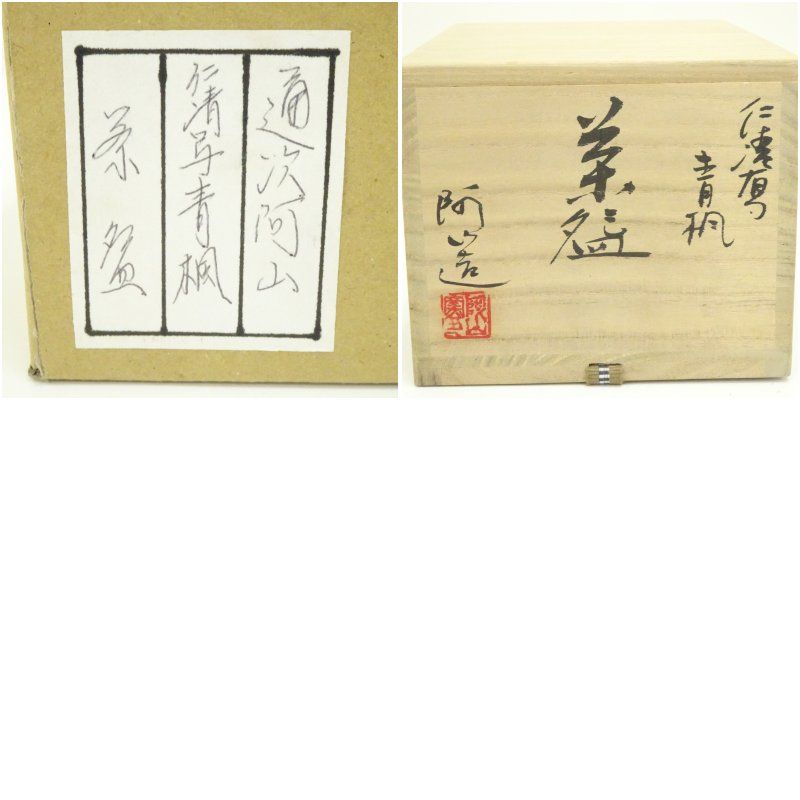 通次阿山
仁清写青楓
茶盌
仁清写
青楓
茶盌
阿山造